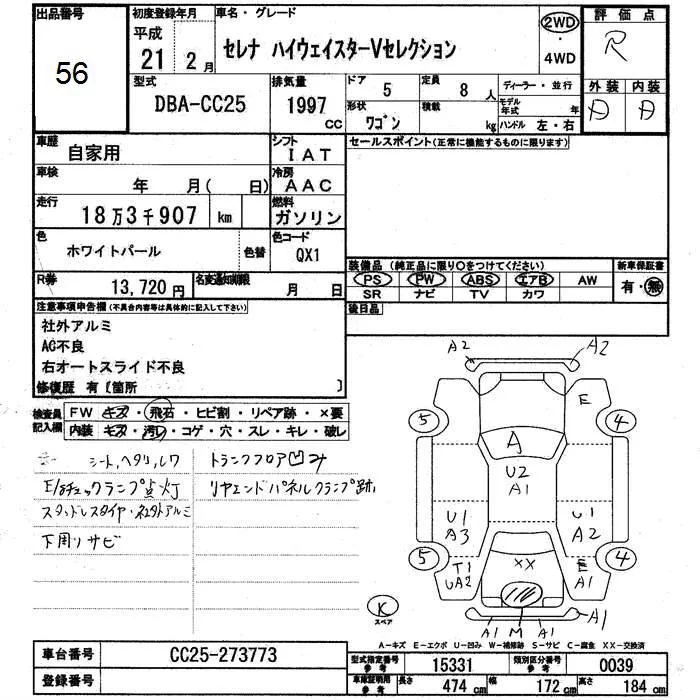 出品番号
56
初度登録年月
平成 21年 2月
車名・グレード
セレナ ハイウェイスターVセレクション
2WD
・
4WD
評価点
R
外装 内装
D D
型式
DBA-CC25
排気量
1997 CC
ドア 5
定員 8人
形状 ワゴン
積載 kg
ディーラー・並行
モデル年式 年
ハンドル 左・右
車歴
自家用
シフト
IAT
セールスポイント(正常に機能するものに限ります)
車検
年 月( 日)
冷房
AAC
走行
18万3千907 km
燃料
ガソリン
色
ホワイトパール
色替
色コード
QX1
装備品 (純正品に限り○をつけてください)
新車保証書
PS PW ABS エアB AW
有・無
SR ナビ TV カワ
R券
13,720円
名変通知期限
月 日
後日品
注意事項申告欄(不具合内容等は具体的に記入して下さい)
社外アルミ
AC不良
右オートスライド不良
修復歴 有〔箇所 〕
検査員記入欄
FW キズ・飛石・ヒビ割・リペア跡・×要
内装 キズ・汚レ・コゲ・穴・スレ・キレ・破レ
シート,ヘタリ,シワ
トランクフロア凹み
E/gチェックランプ点灯
リヤエンドパネルクランプ跡,
スタッドレスタイヤ・社外アルミ
下廻りサビ
A2 A2
E
5 4
A
U2
A1
U1
A3
U1
A2
5 4
T1
UA2
XX
E
A1
K
スペア
A1 M A1 A1
A-キズ E-エクボ U-凹み W-補修跡 S-サビ C-腐食 XX-交換済
車台番号
CC25-273773
登録番号
型式指定番号 参考
15331
類別区分番号 参考
0039
車庫証明用 参考
長さ 474 cm
幅 172 cm
高さ 184 cm